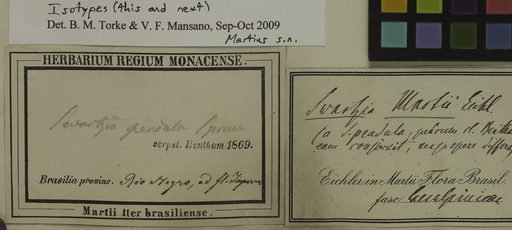 Isotypes (this and next)
Det. B. M. Torke & V. F. Mansano, Sep-Oct 2009
Martius s.n.
HERBARIUM REGIUM MONACENSE.
Swartzia pendula Spruce
scrpst. Benthom 1869.
Brasilia provinc. Rio Negro, ad fl.
Martii Iter brasiliense.
Swartzia Martii Eichl
(a S. pendula, quacum cl. Bentha
eam conjunxit,
Eichler in Martii Flora Brasil.
fasc.